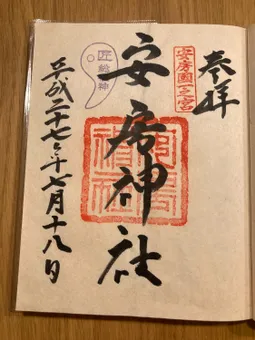 奉拝
安房國一之宮
安房神社
平成二十七年七月十八日